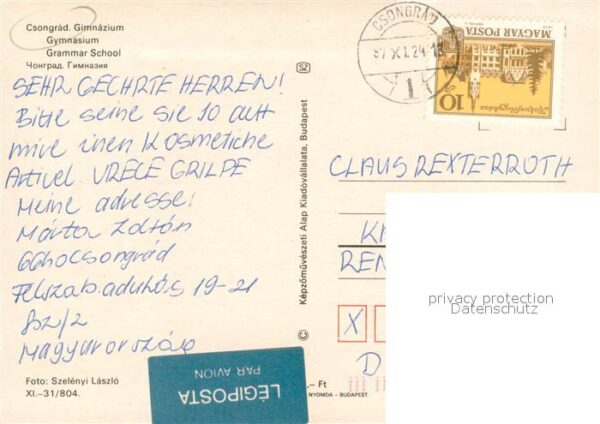 Csongrád. Gimnázium
Gymnasium
Grammar School
Чонград. Гимназия
SEHR GECHRTE HERREN!
Bitte seine sie 10 att
mive inen Kosmetiche
Artivel. VRECE GRILPE
Meine adresse:
Márta Zoltón
6640 Csongrád
Felszabadulás 19-21
Bz/2
Magyarország
Foto: Szelényi László
XI.—31/804.
LÉGIPOSTA
PAR AVION
© Képzőművészeti Alap Kiadóvállalata, Budapest
CSONGRÁD
87 XI. 24 18
1
MAGYAR POSTA
10
Kiskunfélegyháza
CLAUS REXTERROTH
K
REN
X
D
privacy protection
Datenschutz
.– Ft
NYOMDA – BUDAPEST